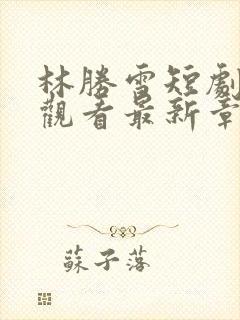 林勝雪短劇
觀看最新章
蘇子落